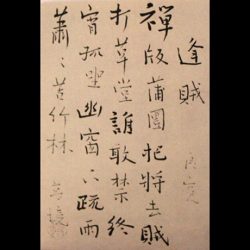 逢賊
禪版蒲團把將去賊
打草堂誰敢禁終
宵孤坐幽窗下疏雨
蕭〻苦竹林